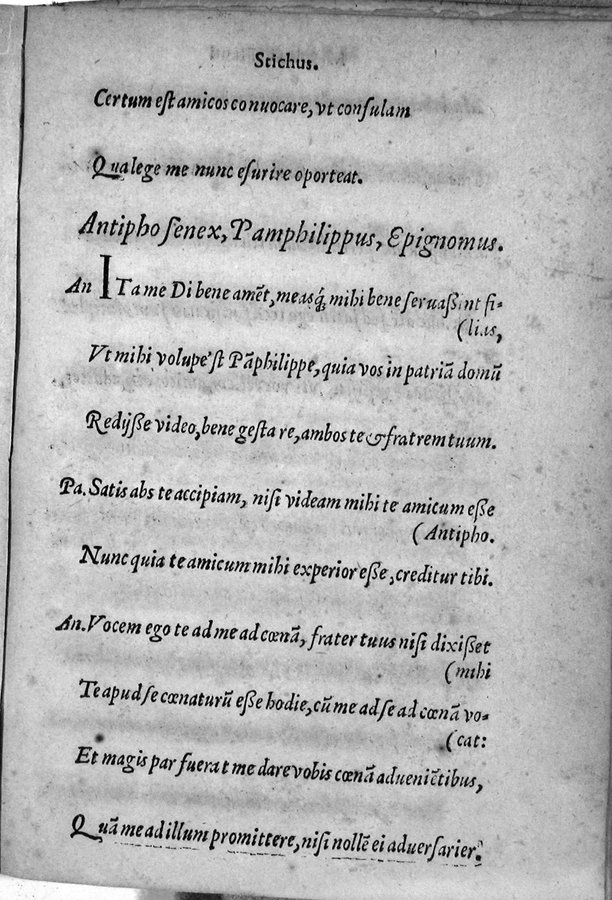 Stichus.
Certum eſt amicos conuocare, vt conſulam
Qua lege me nunc eſurire oporteat.
Antipho ſenex, Pamphilippus, Epignomus.
An ITa me Di bene amēt, measq́; mihi bene ſeruaßint fi-
(lias,
Vt mihi volupe'ſt Pāphilippe, quia vos in patriā domū
Redijſſe video, bene geſta re, ambos te & fratrem tuum.
Pa. Satis abs te accipiam, niſi videam mihi te amicum eſſe
(Antipho.
Nunc quia te amicum mihi experior eſſe, creditur tibi.
An. Vocem ego te ad me ad cœnā, frater tuus niſi dixiſſet
(mihi
Te apud ſe cœnaturū eſſe hodie, cū me ad ſe ad cœnā vo-
(cat:
Et magis par fuerat me dare vobis cœnā adueniētibus,
Quā me ad illum promittere, niſi nollē ei aduerſarier.